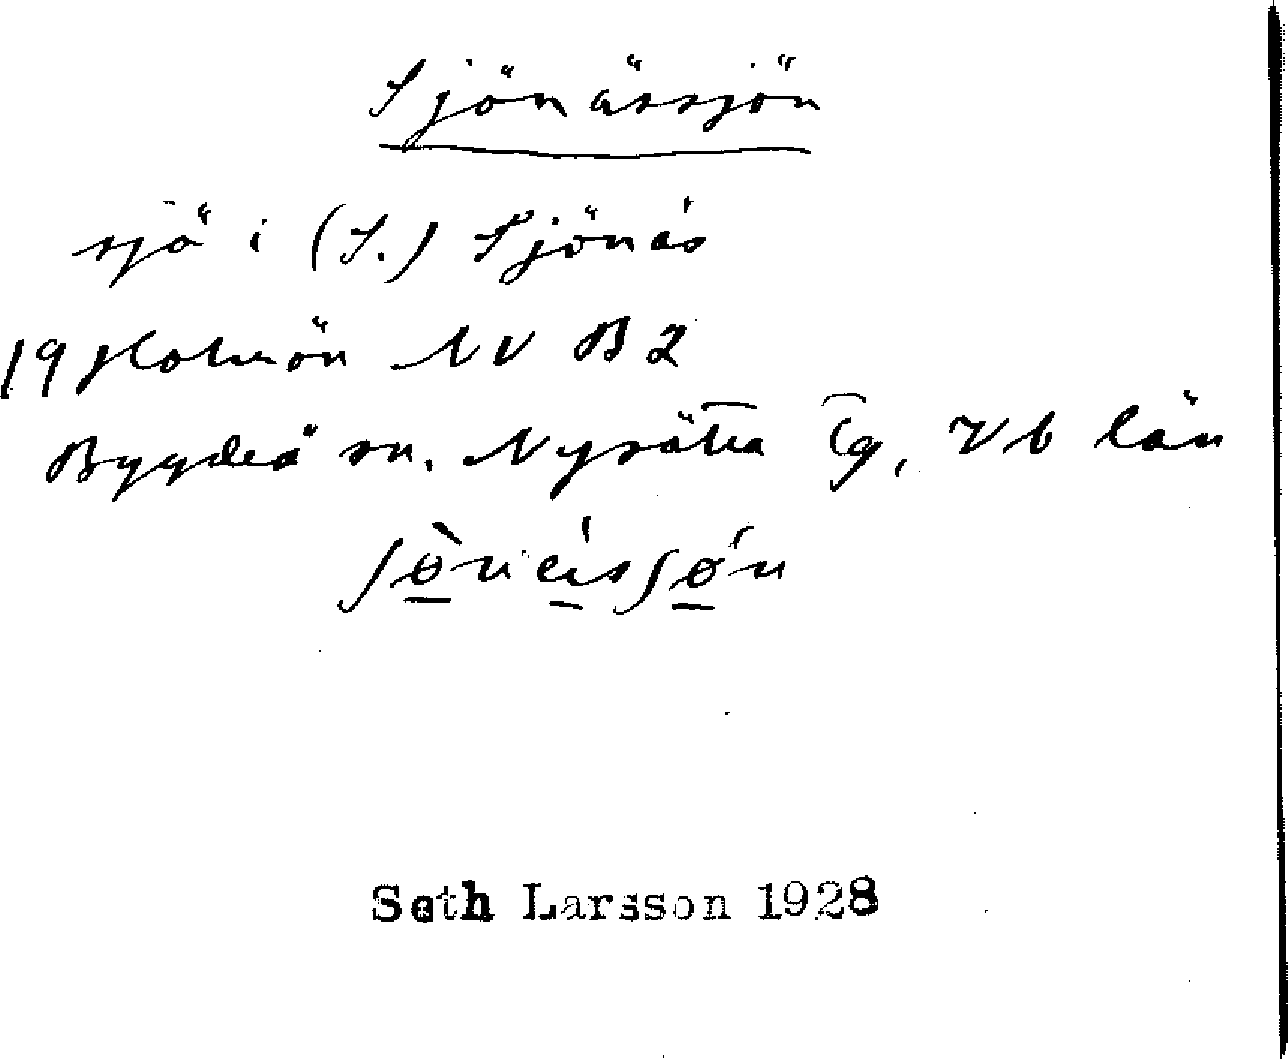 Sjönässjön
sjö i (S.) Sjönäs
19 Holmön NV B2
Bygdeå sn. Nysätra tg, Vb län
ʃø̀näsʃǿn
Seth Larsson 1928